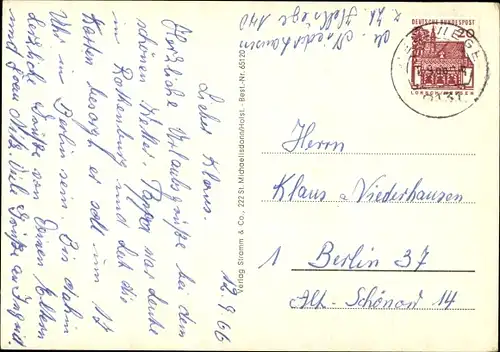 12.9.66
Lieber Klaus.
Herzliche Urlaubsgrüße bei dem
schönen Wetter. Pappa war heute
in Rothenburg und hat die
Karten besorgt er soll um 17
Uhr in Berlin sein. Bis dahin
herzliche Grüße von Deinen Eltern
und Frau Viele Grüße an Ingrid.
Verlag Stramm & Co., 222 St. Michaelisdonn/Holst. - Best.-Nr. 65120
v. Niederhausen
DEUTSCHE BUNDESPOST
20
LORSCH HESSEN
Herrn
Klaus v. Niederhausen
1 Berlin 37
Alt-Schönow 14